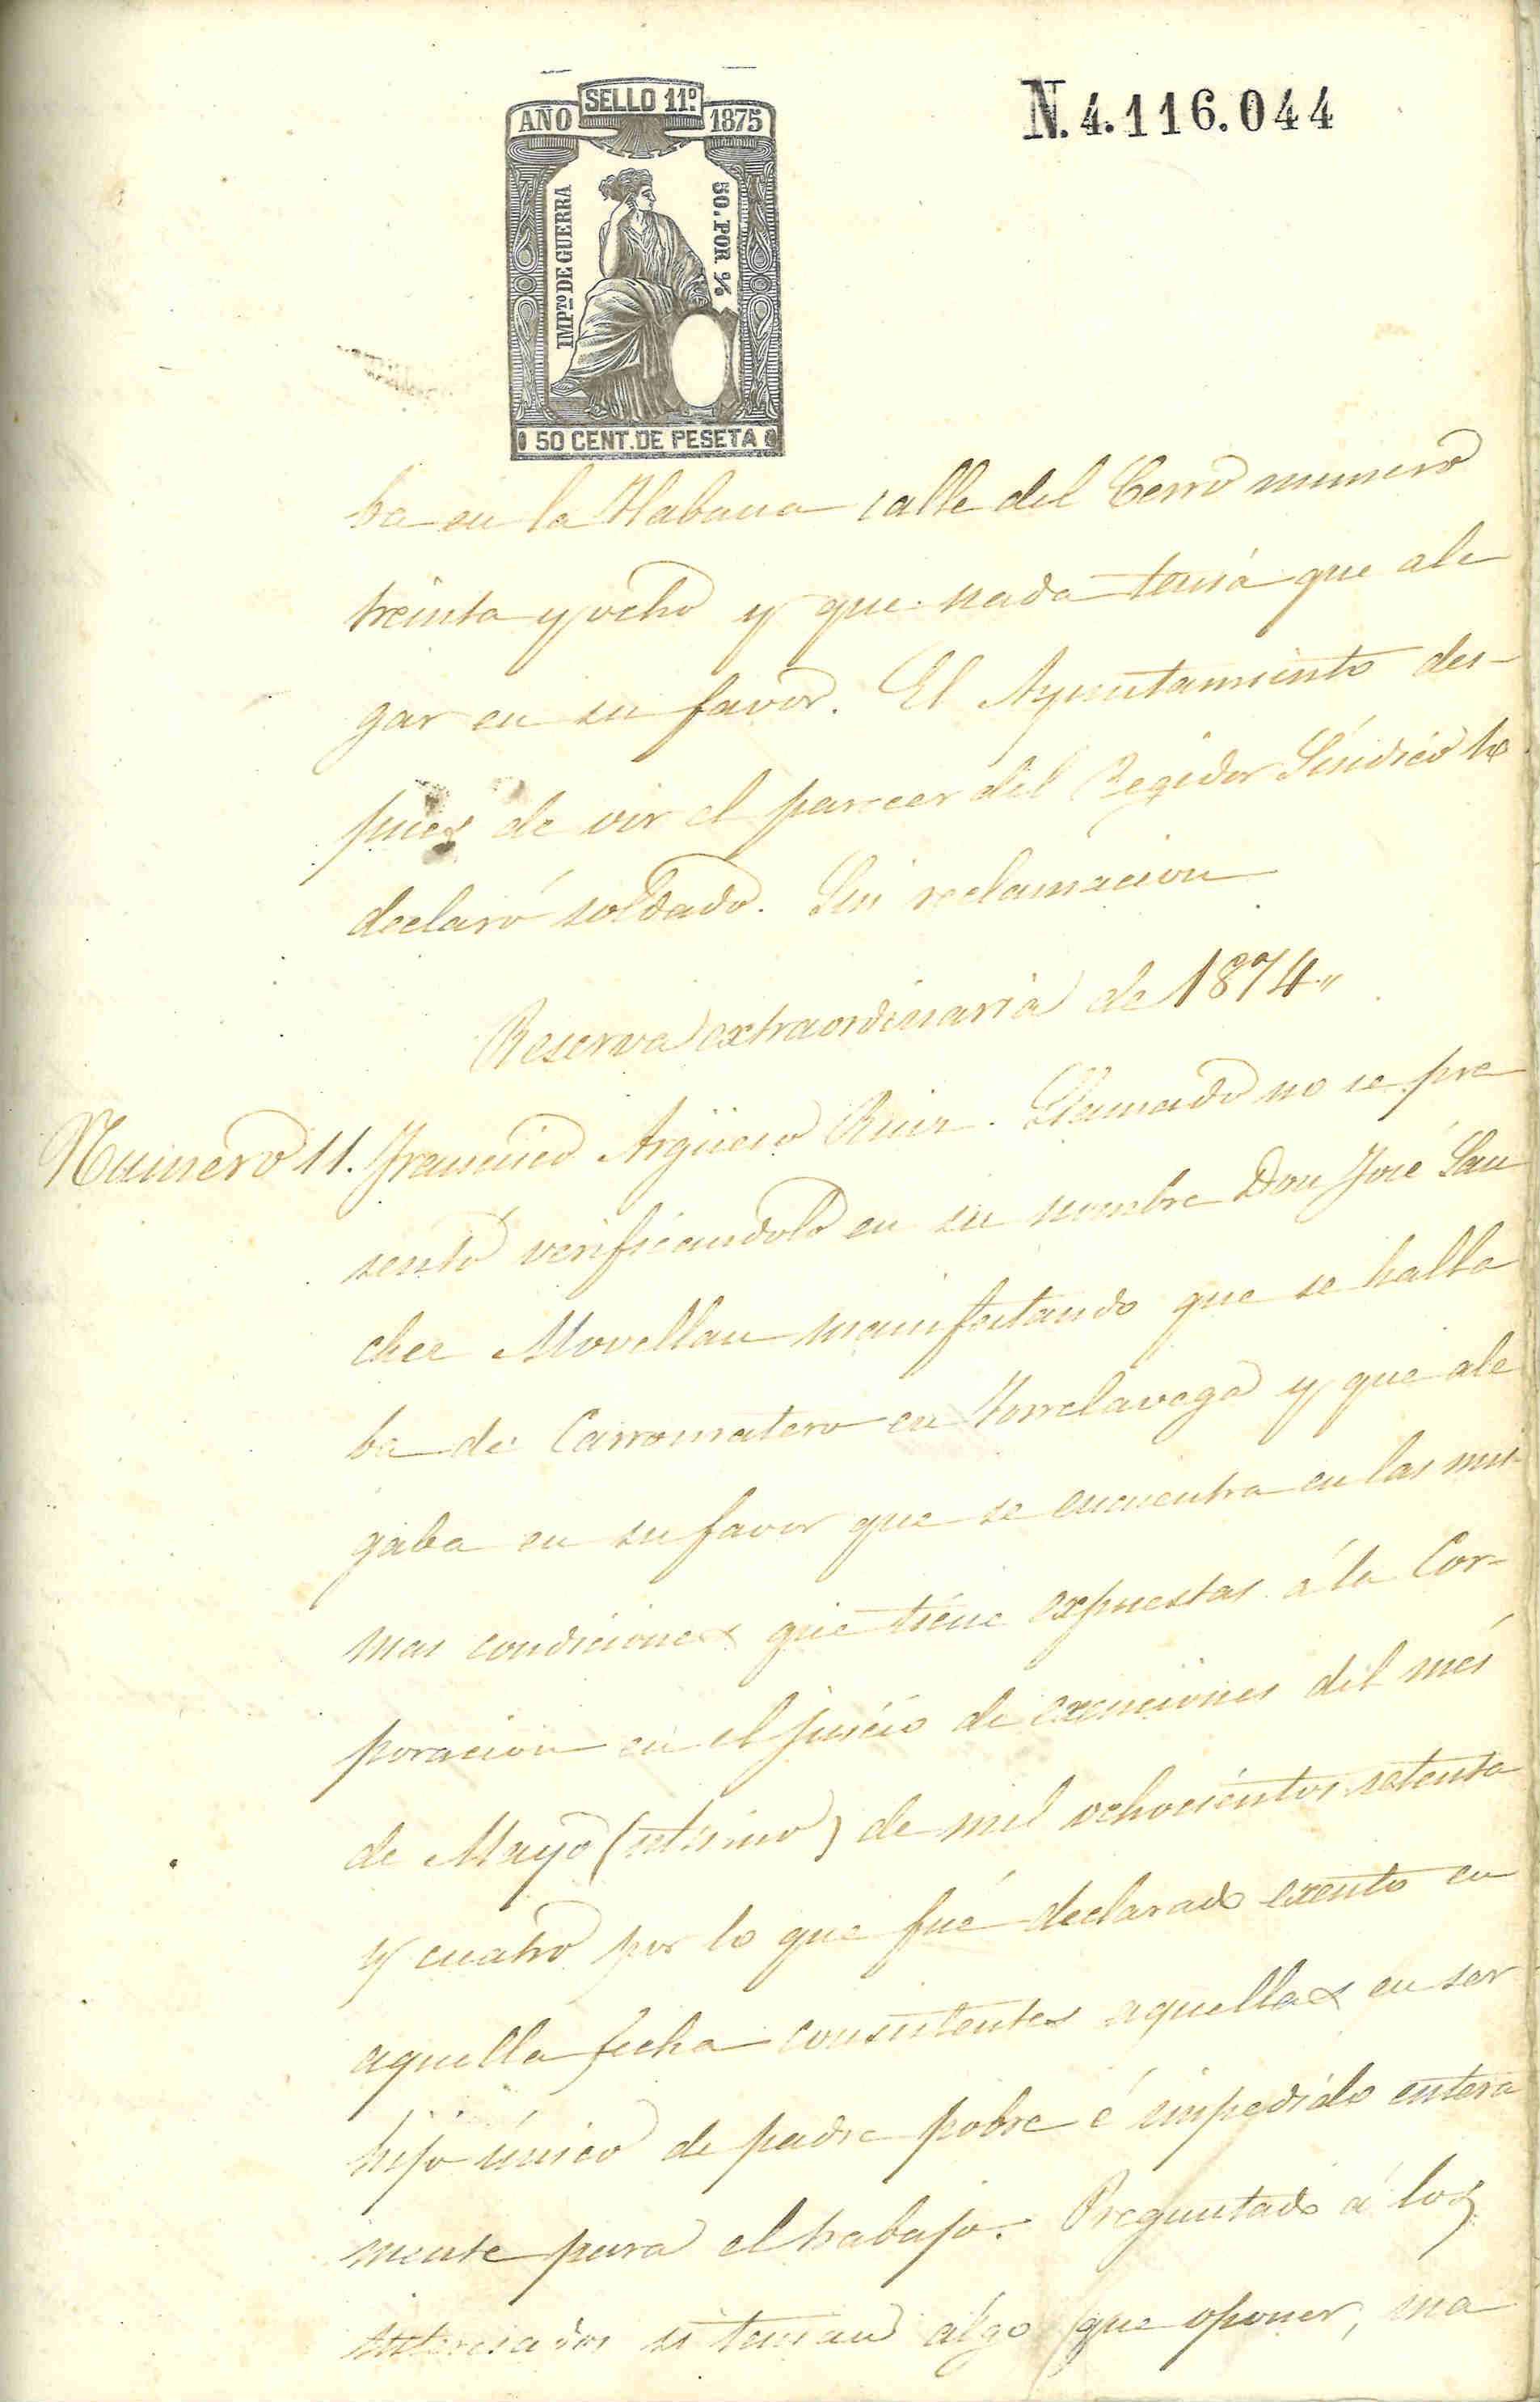 SELLO 11º
AÑO 1875
N. 4.116.044
IMPTO DE GUERRA
50. POR %
50 CENT. DE PESETA
ba en la Habana calle del Cerro numero
treinta y ocho y que nada tenia que ale
gar en su favor. El Ayuntamiento des-
pues de oir el parecer del Regidor Síndico le
declaró soldado. Sin reclamacion
Reserva extraordinaria de 1874„
Numero 11. Francisco Argüeso Ruiz. Llamado no se pre
sentó verificandolo en su nombre Don José San
chez Movellan manifestando que se halla
ba de Carromatero en Torrelavega y que ale
gaba en su favor que se encuentra en las mis-
mas condiciones que tiene expuestas á la Cor-
poracion en el juicio de exenciones del més
de Mayo (último) de mil ochocientos setenta
y cuatro por lo que fué declarado exento en
aquella fecha consistentes aquellas en ser
hijo único de padre pobre é impedido entera
mente para el trabajo. Preguntado á los
interesados si tenian algo que oponer, ma